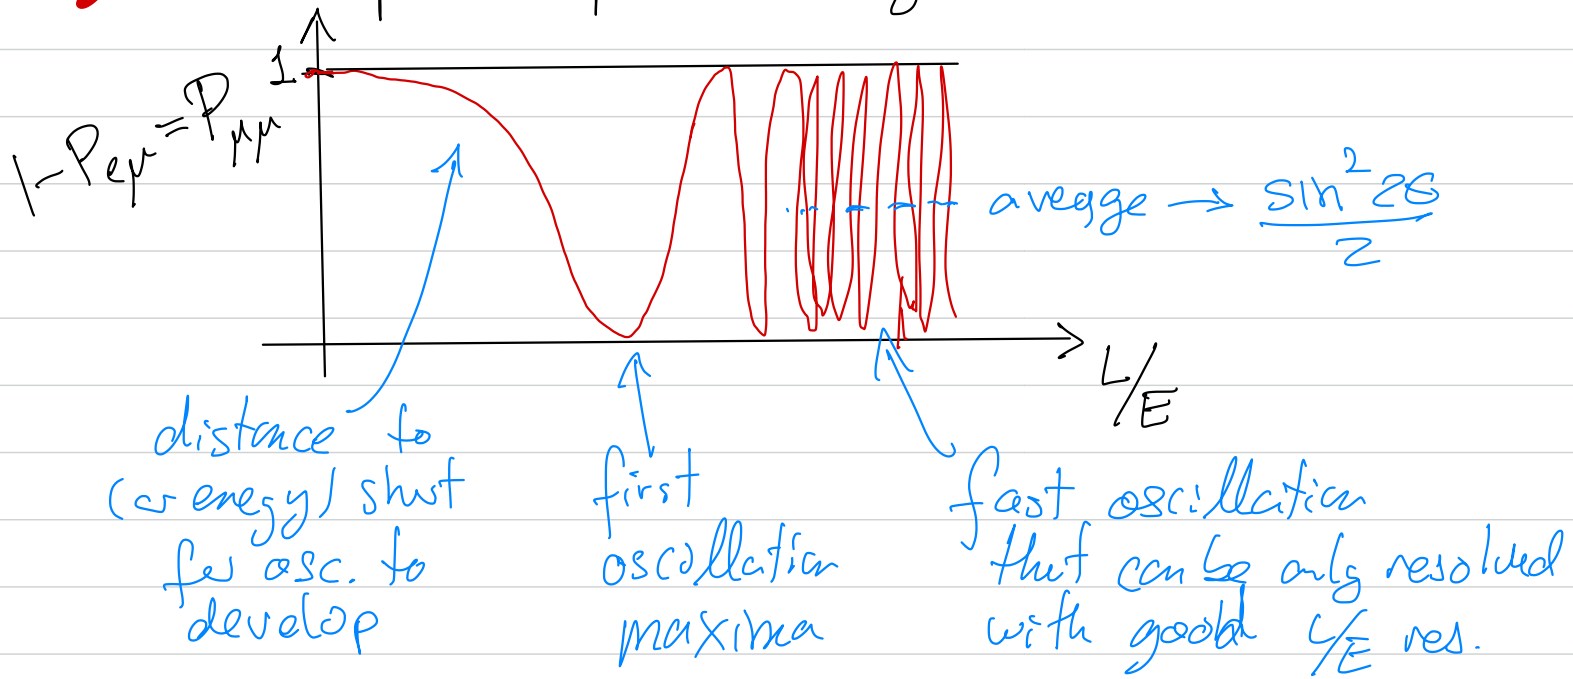 1
1-P_eμ = P_μμ
aveage → sin²2θ/2
L/E
distance to
(or enegy) short
for osc. to
develop
first
oscillation
maxima
fast oscillation
that can be only resolved
with good L/E res.